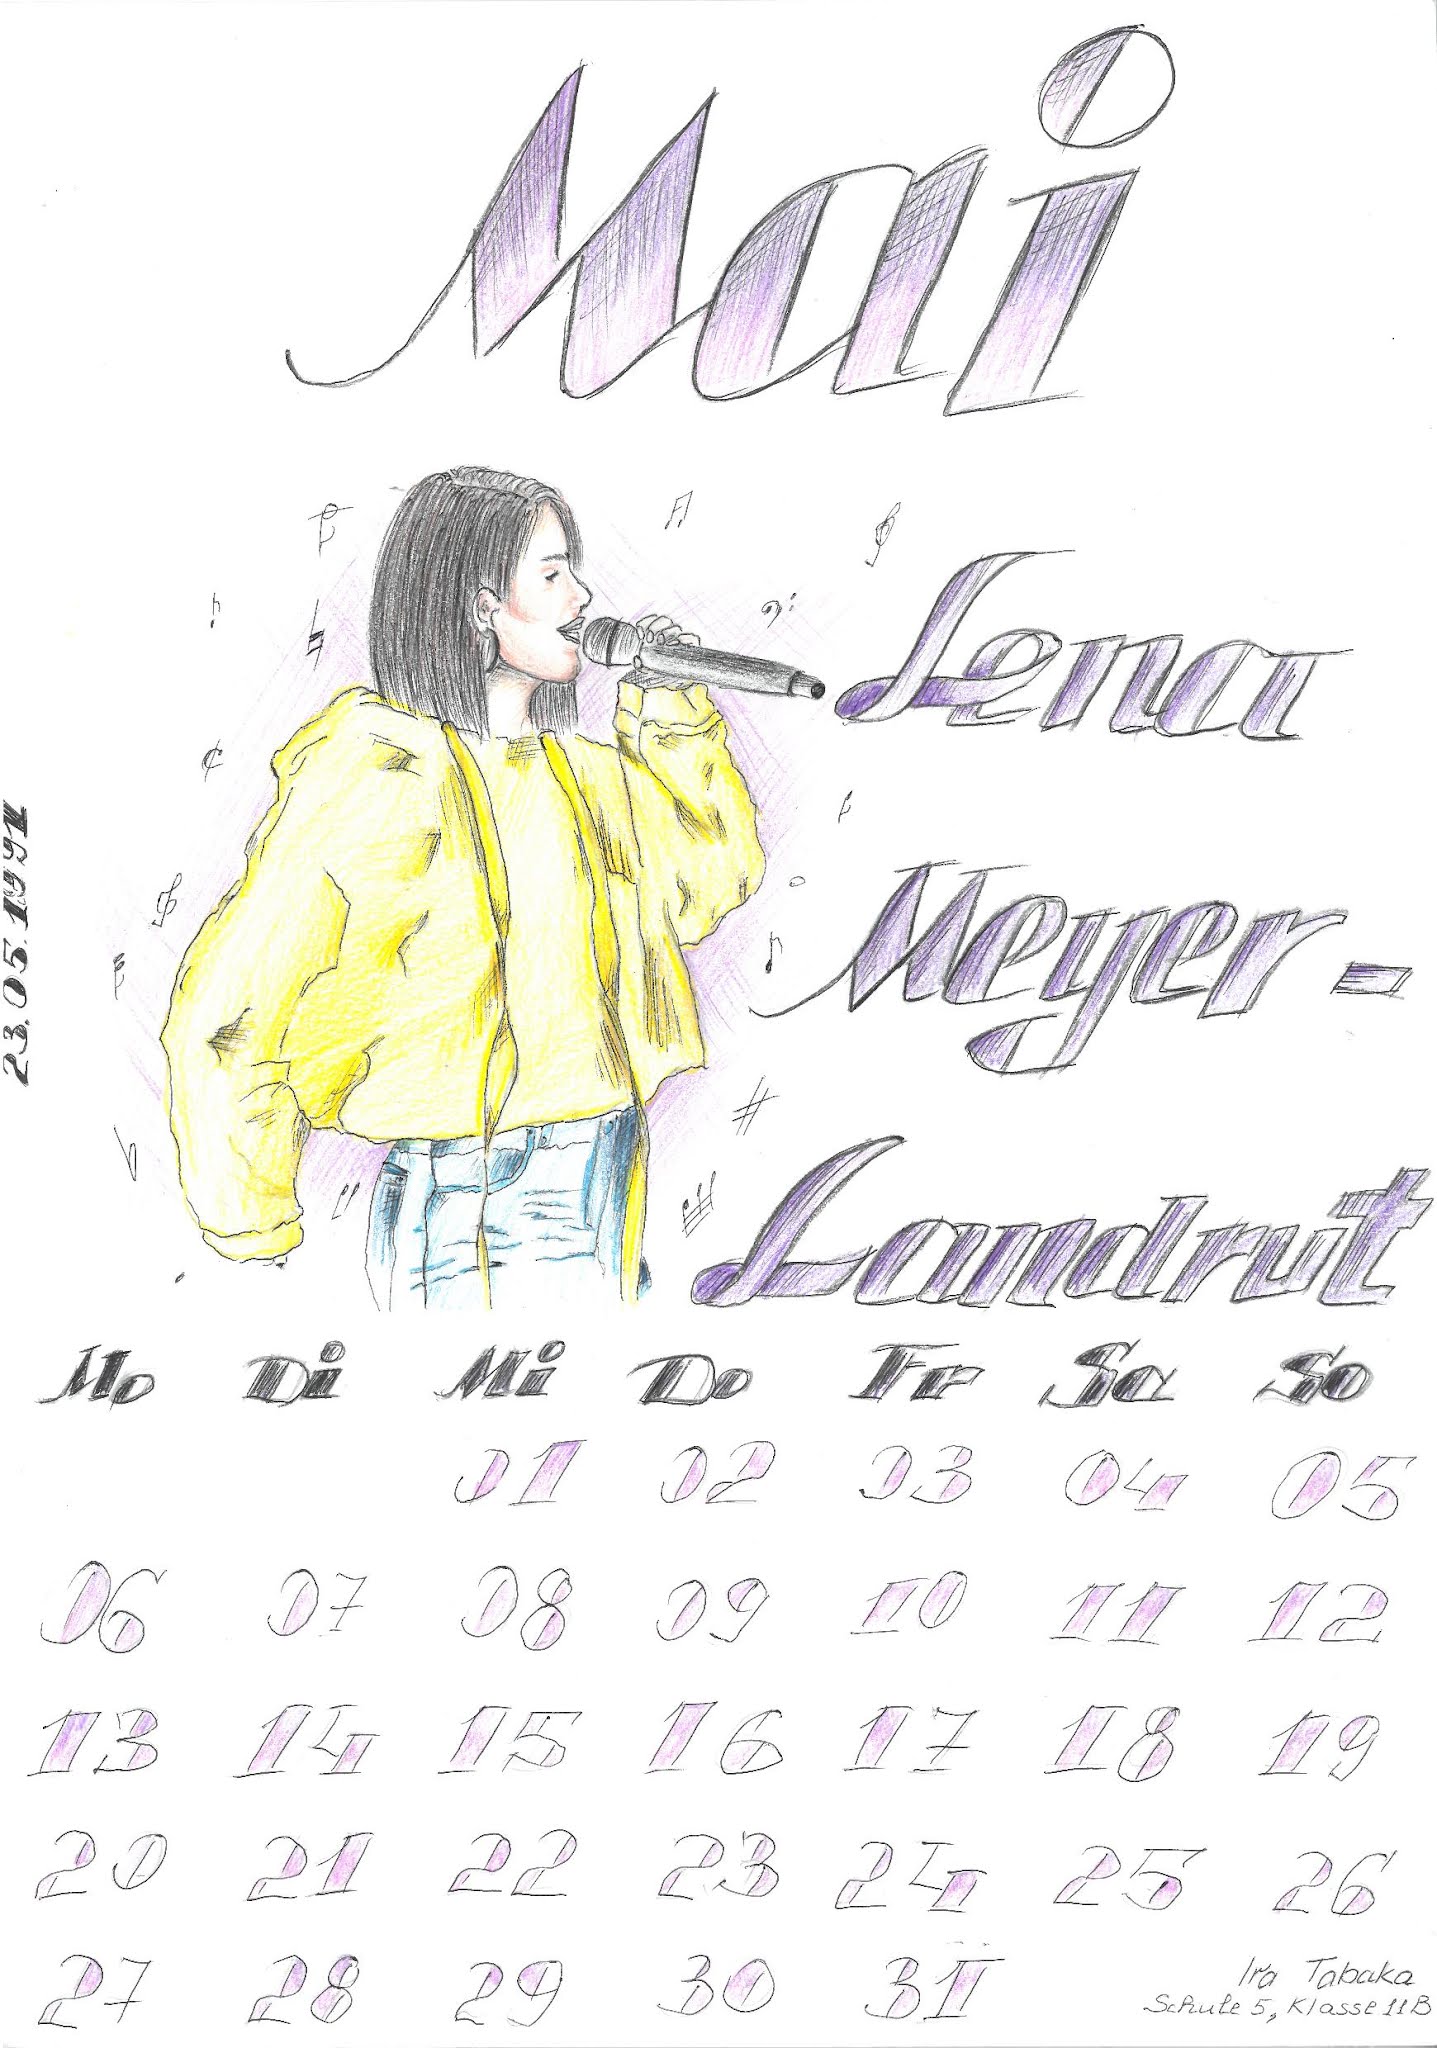 Mai
Lena
Meyer-
Landrut
23.05.1991
Mo Di Mi Do Fr Sa So
01 02 03 04 05
06 07 08 09 10 11 12
13 14 15 16 17 18 19
20 21 22 23 24 25 26
27 28 29 30 31
Ira Tabaka
Schule 5, Klasse 11B